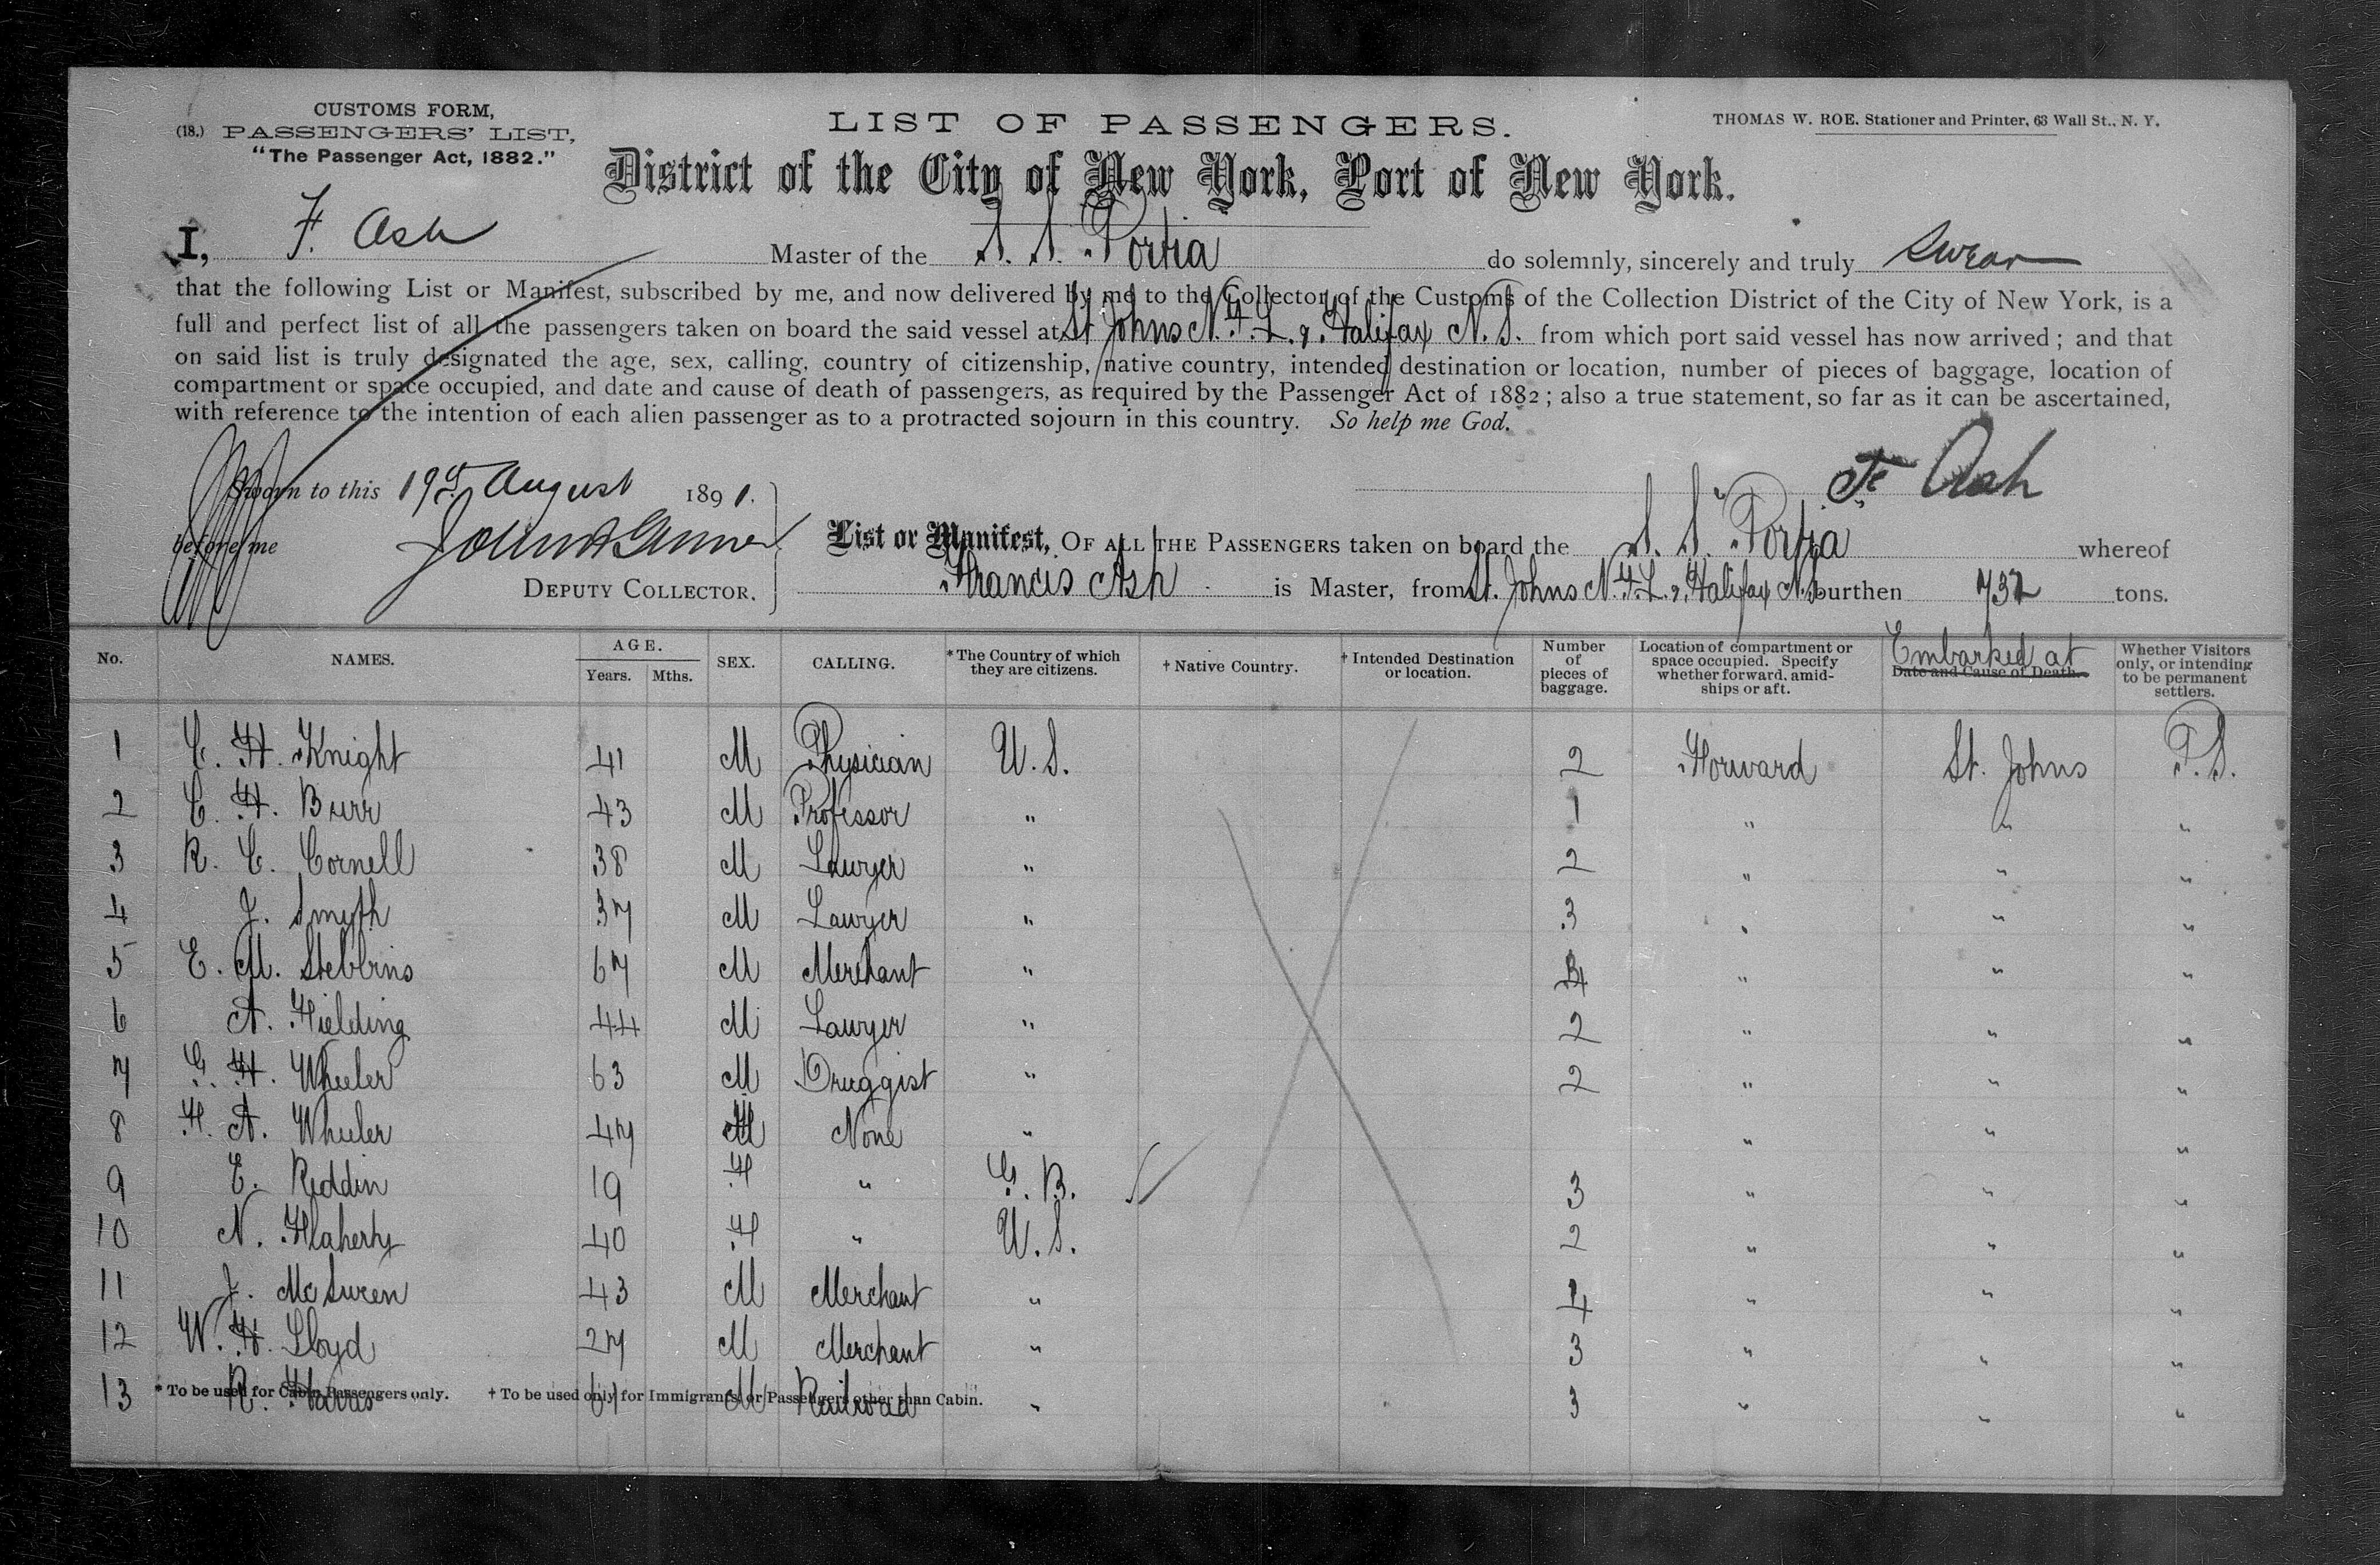 CUSTOMS FORM,
(18.) PASSENGERS' LIST,
"The Passenger Act, 1882."
LIST OF PASSENGERS.
THOMAS W. ROE. Stationer and Printer, 63 Wall St., N. Y.
District of the City of New York, Port of New York.
I, F. Ash Master of the S. S. Portia do solemnly, sincerely and truly swear
that the following List or Manifest, subscribed by me, and now delivered by me to the Collector of the Customs of the Collection District of the City of New York, is a
full and perfect list of all the passengers taken on board the said vessel at St Johns N. F. L. & Halifax N. S. from which port said vessel has now arrived; and that
on said list is truly designated the age, sex, calling, country of citizenship, native country, intended destination or location, number of pieces of baggage, location of
compartment or space occupied, and date and cause of death of passengers, as required by the Passenger Act of 1882; also a true statement, so far as it can be ascertained,
with reference to the intention of each alien passenger as to a protracted sojourn in this country. So help me God.
Sworn to this 19 August 1891.
F Ash
before me
DEPUTY COLLECTOR.
List or Manifest, OF ALL THE PASSENGERS taken on board the S. S. Portia whereof
Francis Ash is Master, from St. Johns N. F. L. & Halifax N.S burthen 732 tons.
No. NAMES. AGE. Years. Mths. SEX. CALLING. * The Country of which they are citizens. † Native Country. † Intended Destination or location. Number of pieces of baggage. Location of compartment or space occupied. Specify whether forward, amidships or aft. Embarked at Date and Cause of Death. Whether Visitors only, or intending to be permanent settlers.
1 C. H. Knight 41 M Physician U. S. 2 Forward St. Johns P. S.
2 C. H. Burr 43 M Professor " 1 " " "
3 R. C. Cornell 38 M Lawyer " 2 " " "
4 J. Smyth 37 M Lawyer " 3 " " "
5 E. M. Stebbins 67 M Merchant " 4 " " "
6 A. Fielding 44 M Lawyer " 2 " " "
7 G. H. Wheeler 63 M Druggist " 2 " " "
8 F. A. Wheeler 47 F None " " " "
9 E. Reddin 19 F " G. B. 3 " " "
10 N. Flaherty 40 F " U. S. 2 " " "
11 J. McSween 43 M Merchant " 4 " " "
12 W. H. Lloyd 27 M Merchant " 3 " " "
13 R. Harris M Railroad " 3 " " "
* To be used for Cabin Passengers only. † To be used only for Immigrants or Passengers other than Cabin.